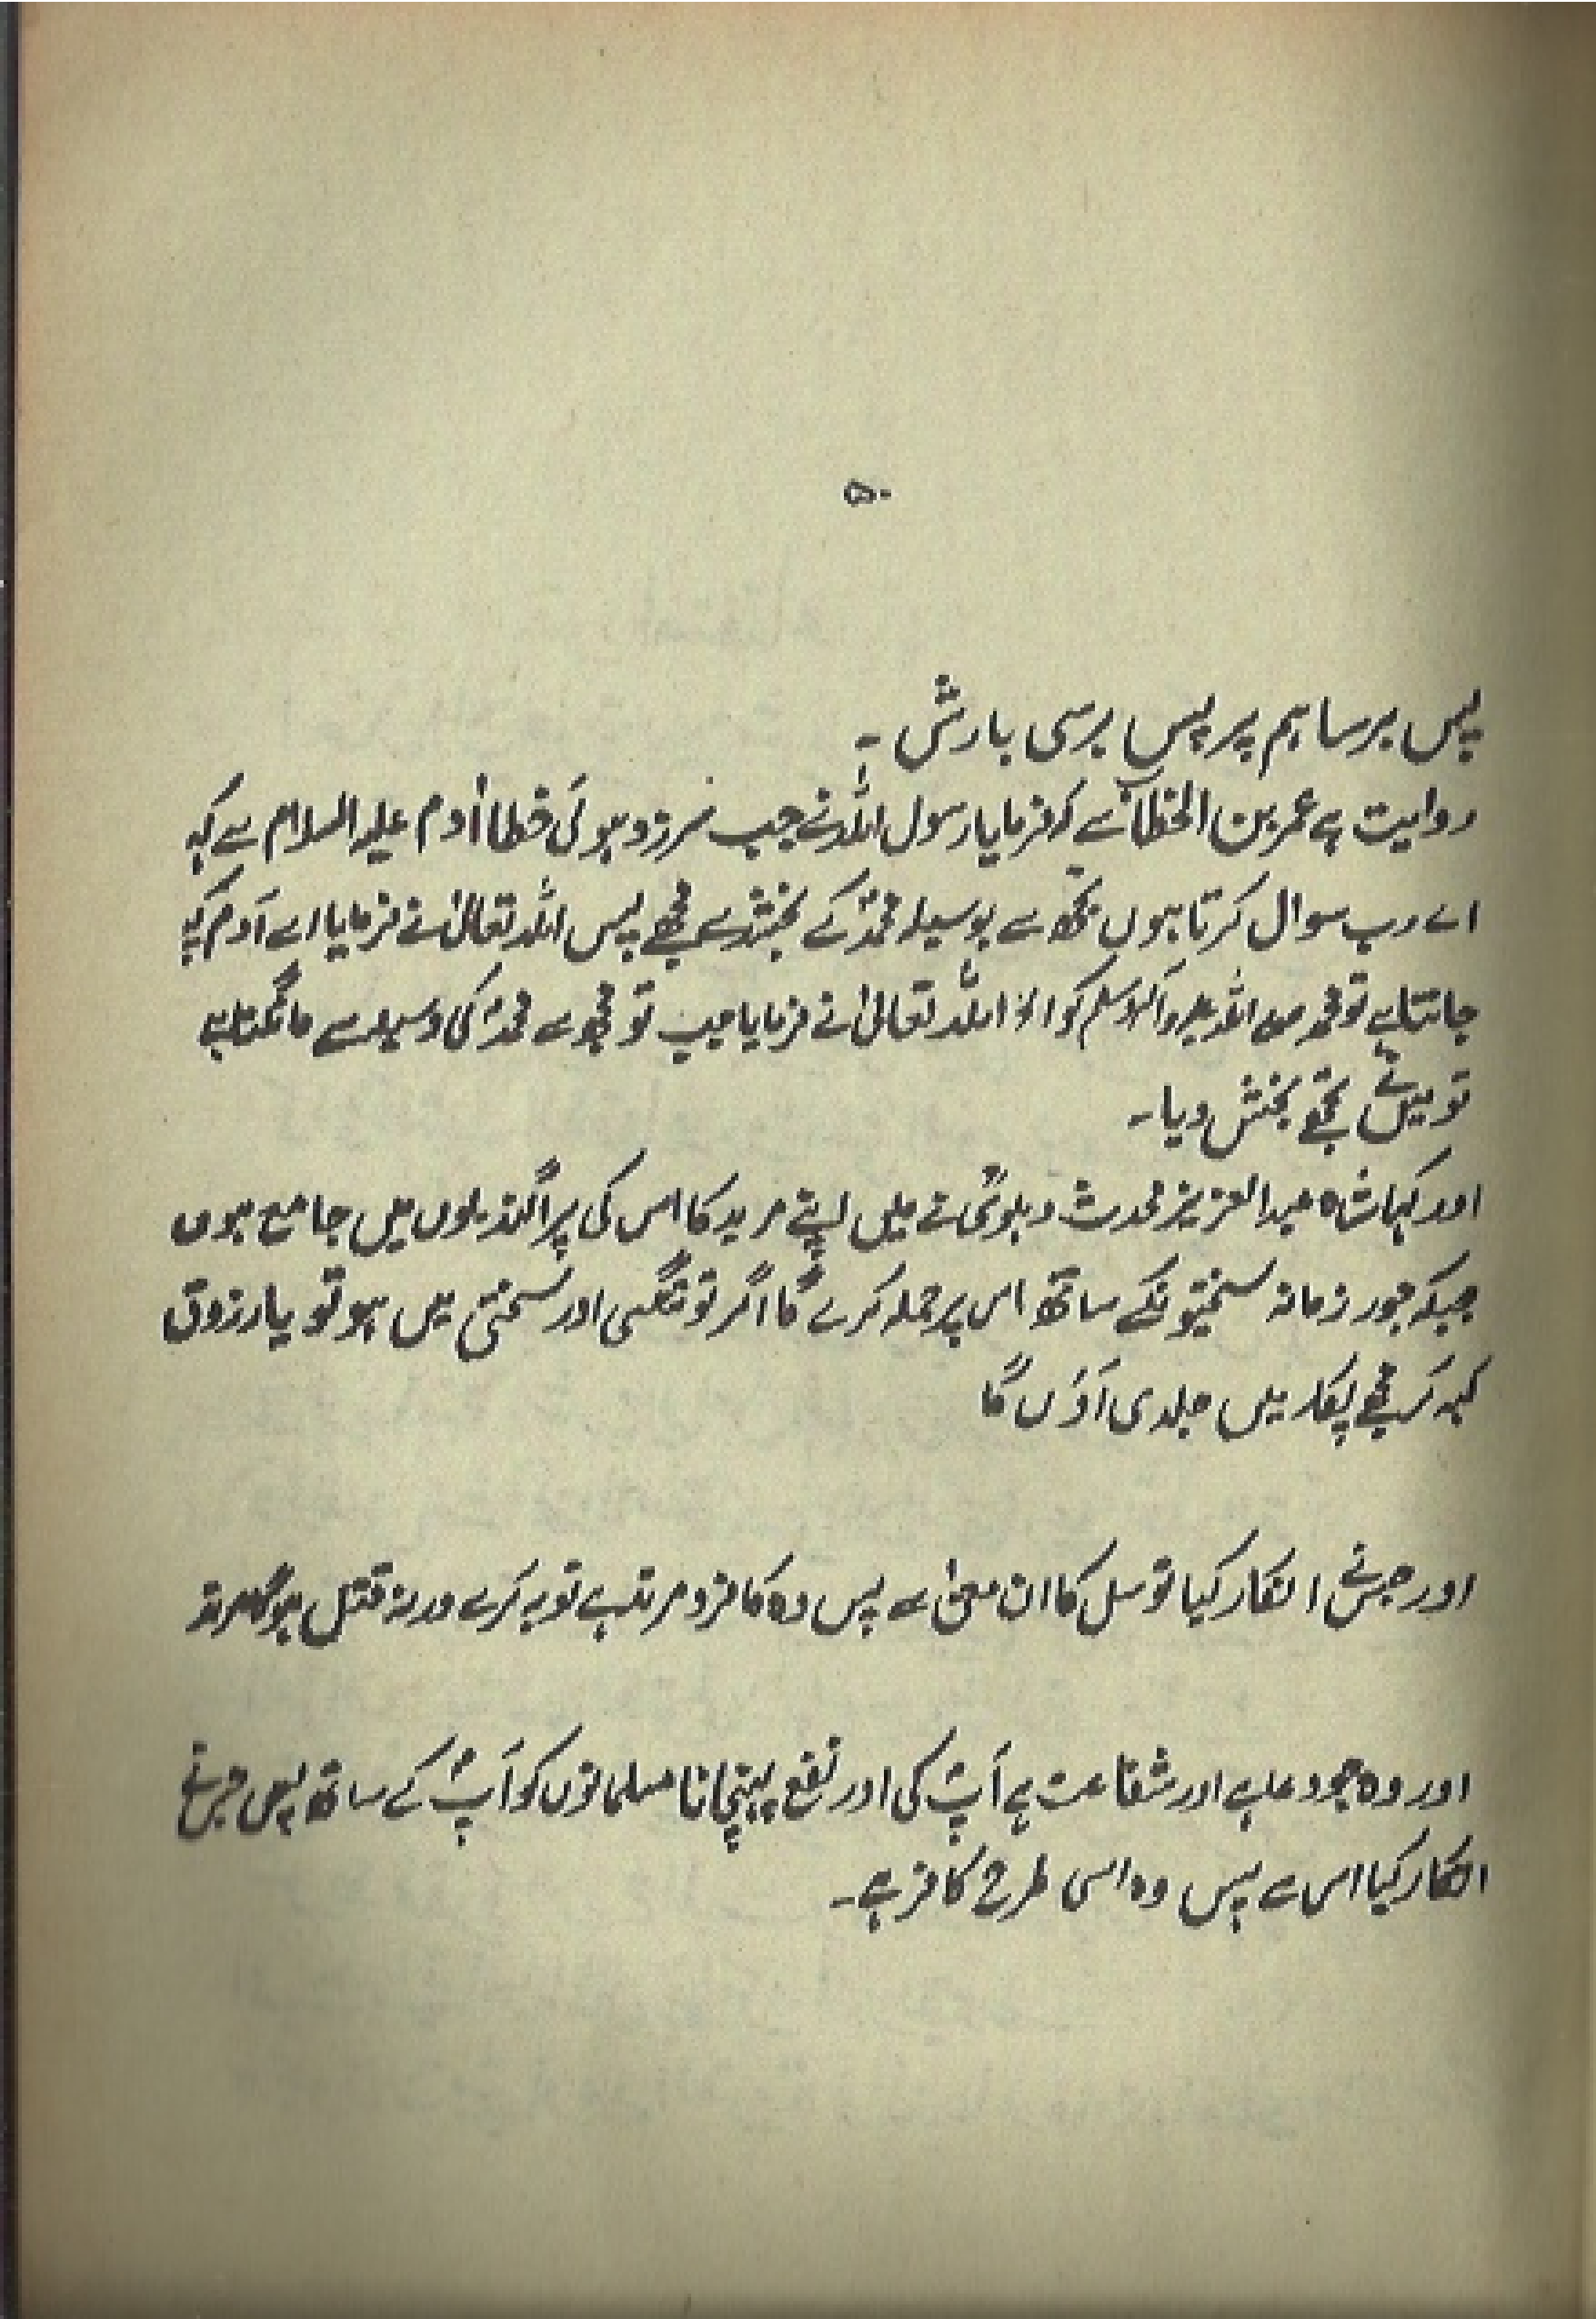 ۵۰
پس برسا ہم پر پس برسی بارش ۔
روایت ہے عمر بن الخطابؓ سے کہ فرمایا رسول اللہ نے جب سرزد ہوئی خطا آدم علیہ السلام سے کہا
اے رب سوال کرتا ہوں تجھ سے بوسیلہ محمدؐ کے بخشدے مجھے پس اللہ تعالیٰ نے فرمایا اے آدم کیا
جانتا ہے تو محمد صلی اللہ علیہ وآلہ وسلم کو اللہ تعالیٰ نے فرمایا جب تو مجھ سے محمدؐ کی وسیلہ سے مانگتا ہے
تو میں نے تجھے بخش دیا ۔
اور کہا شاہ عبدالعزیز محدث دہلویؒ نے میں اپنے مرید کا اس کی پراگندیوں میں جامع ہوں
جبکہ جور زمانہ سختیوں کے ساتھ اس پر حملہ کرے گا اگر تو تنگی اور سختی میں ہو تو یا رزوق
کہہ کر مجھے پکار میں جلدی آؤں گا
اور جس نے انکار کیا توسل کا ان معنیٰ سے پس وہ کافر و مرتد ہے توبہ کرے ورنہ قتل ہوگا مرتد
اور وہ جو دعا ہے اور شفاعت ہے آپؐ کی اور نفع پہنچانا مسلمانوں کو آپؐ کے ساتھ پس جس نے
انکار کیا اس سے پس وہ اسی طرح کافر ہے ۔